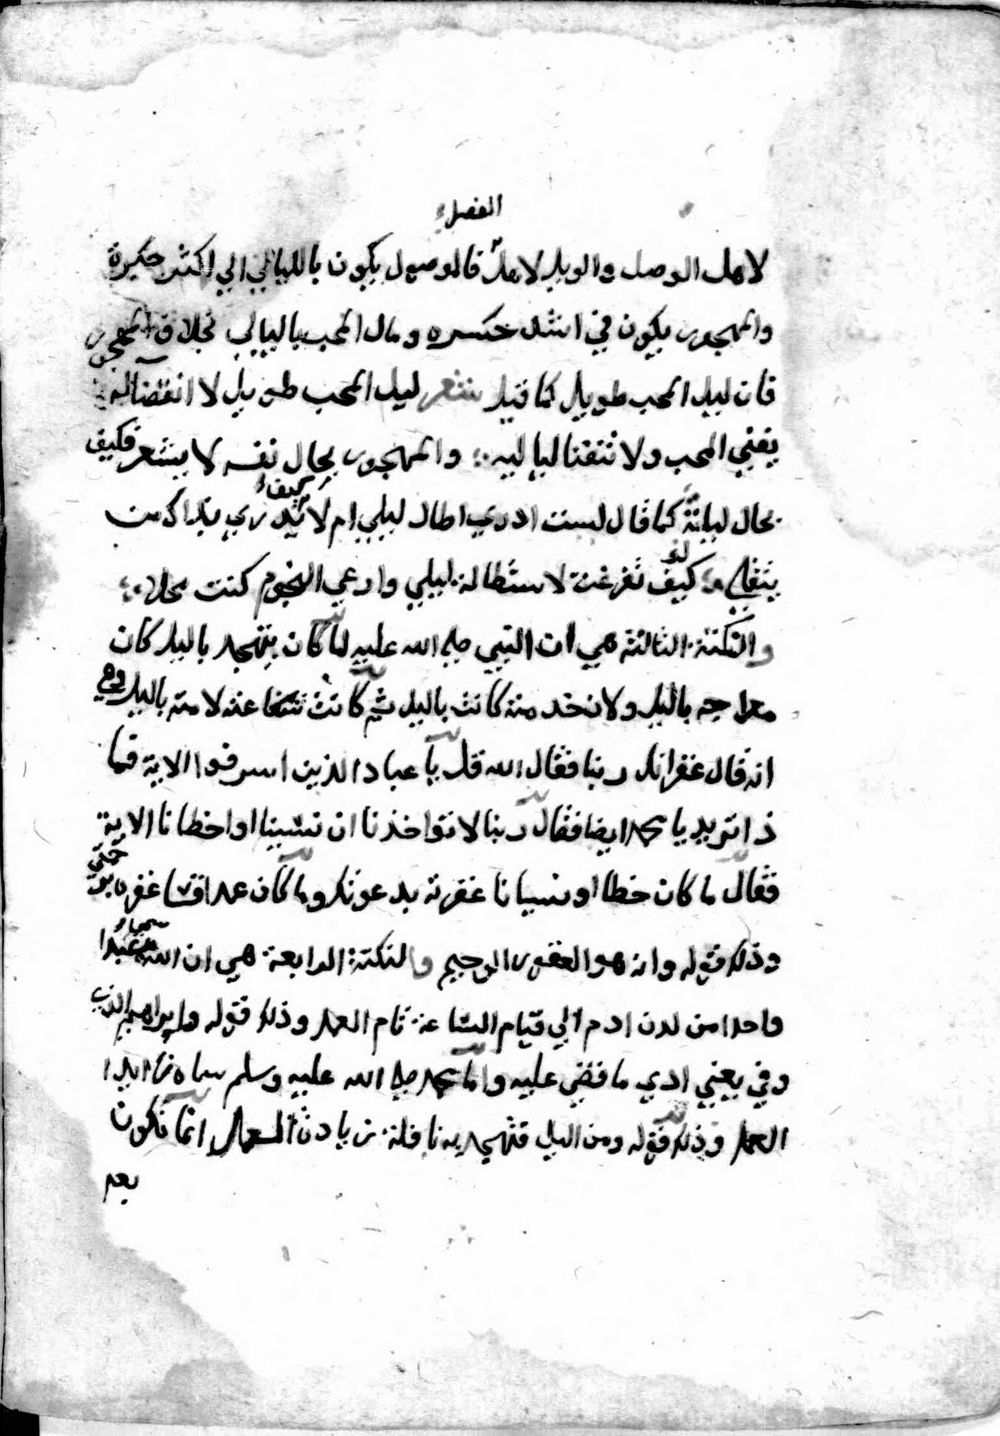 الفصل
لاهل الوصل والويل لاهل فالموصول يكون بالليالي الي اكثر حكيرة
والمهجور يكون في اشد حكسره ومال المحب باليالي بخلاق المهجور
فان ليل المحب طويل كما قيل شعر ليل المحب طويل لا انقضاله
يفني المحب ولا تنقنا لياليه والمهجور بحال نفسه لا يشعر فكيف
بحال ليلته كما قال لست ادري اطال ليلي ام لا كيف يدري بذاك من
يتقلي لو كيف تفرغت لاستطالة ليلي وارعي النجوم كنت محلا
والنكتة الثالثة هي ان النبي صلي الله عليه لما كان يتهجد باليل كان
معراجه باليل ولان خدمته كانت باليل ثم كانت شفاعته لامته باليل وهي
انه قال غفرانك ربنا فقال الله قل يا عباد الذين اسرفوا الاية فما
ذا تريد يا محمد ايضا فقال ربنا لا تواخذنا ان نسينا او اخطانا الاية
فقال ما كان خطا او نسيانا غفرته بدعوتك وما كان عمدا غفره
وذلك قوله وانه هو الغفور الرحيم والنكتة الرابعة هي ان الله عبدا
واحدا من لدن ادم الي قيام الساعة تام العمل وذلك قوله وابراهيم الذي
وفي يعني ادي ما فضي عليه واما محمد صلي الله عليه وسلم
العمل وذلك قوله ومن اليل فتهجد به نافلة زيادة العمل انما تكون
بعد